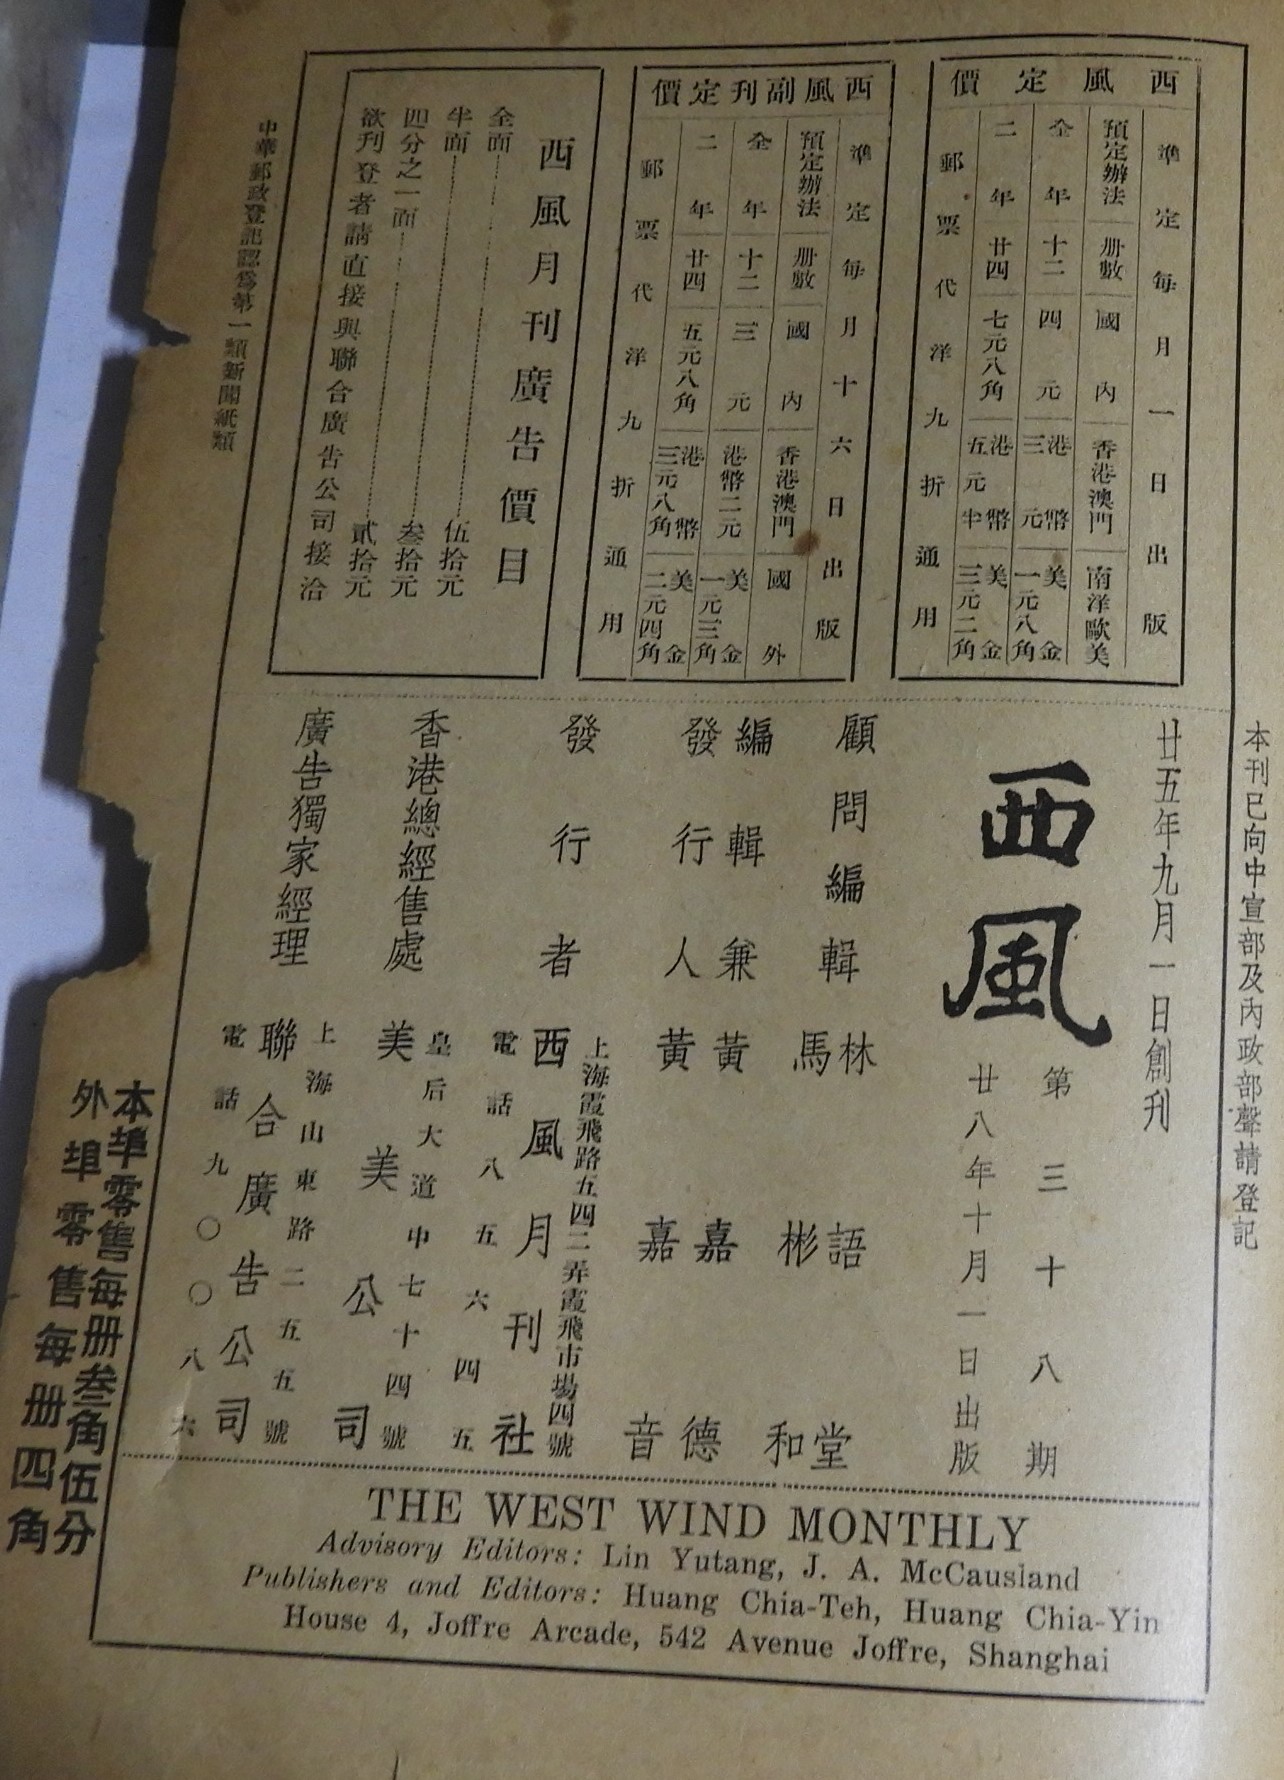 本刊已向中宣部及內政部聲請登記
西風定價
準定每月一日出版
預定辦法 冊數 國內 香港澳門 南洋歐美
全年 十二 四元 港幣三元 美金一元八角
二年 廿四 七元八角 港幣五元半 美金三元二角
郵票代洋九折通用
西風副刊定價
準定每月十六日出版
預定辦法 冊數 國內 香港澳門 國外
全年 十二 三元 港幣二元 美金一元三角
二年 廿四 五元八角 港幣三元八角 美金二元四角
郵票代洋九折通用
西風月刊廣告價目
全面 伍拾元
半面 叁拾元
四分之一面 貳拾元
欲刊登者請直接與聯合廣告公司接洽
中華郵政登記認為第一類新聞紙類
廿五年九月一日創刊
西風
第三十八期
廿八年十月一日出版
顧問編輯 林語堂
馬彬和
編輯兼 黃嘉德
發行人 黃嘉音
發行者 西風月刊社
上海霞飛路五四二弄霞飛市場四號
電話八五六四五
香港總經售處 美美公司
皇后大道中七十四號
廣告獨家經理 聯合廣告公司
上海山東路二五五號
電話九〇〇八六
本埠零售每冊叁角伍分
外埠零售每冊四角
THE WEST WIND MONTHLY
Advisory Editors: Lin Yutang, J. A. McCausland
Publishers and Editors: Huang Chia-Teh, Huang Chia-Yin
House 4, Joffre Arcade, 542 Avenue Joffre, Shanghai